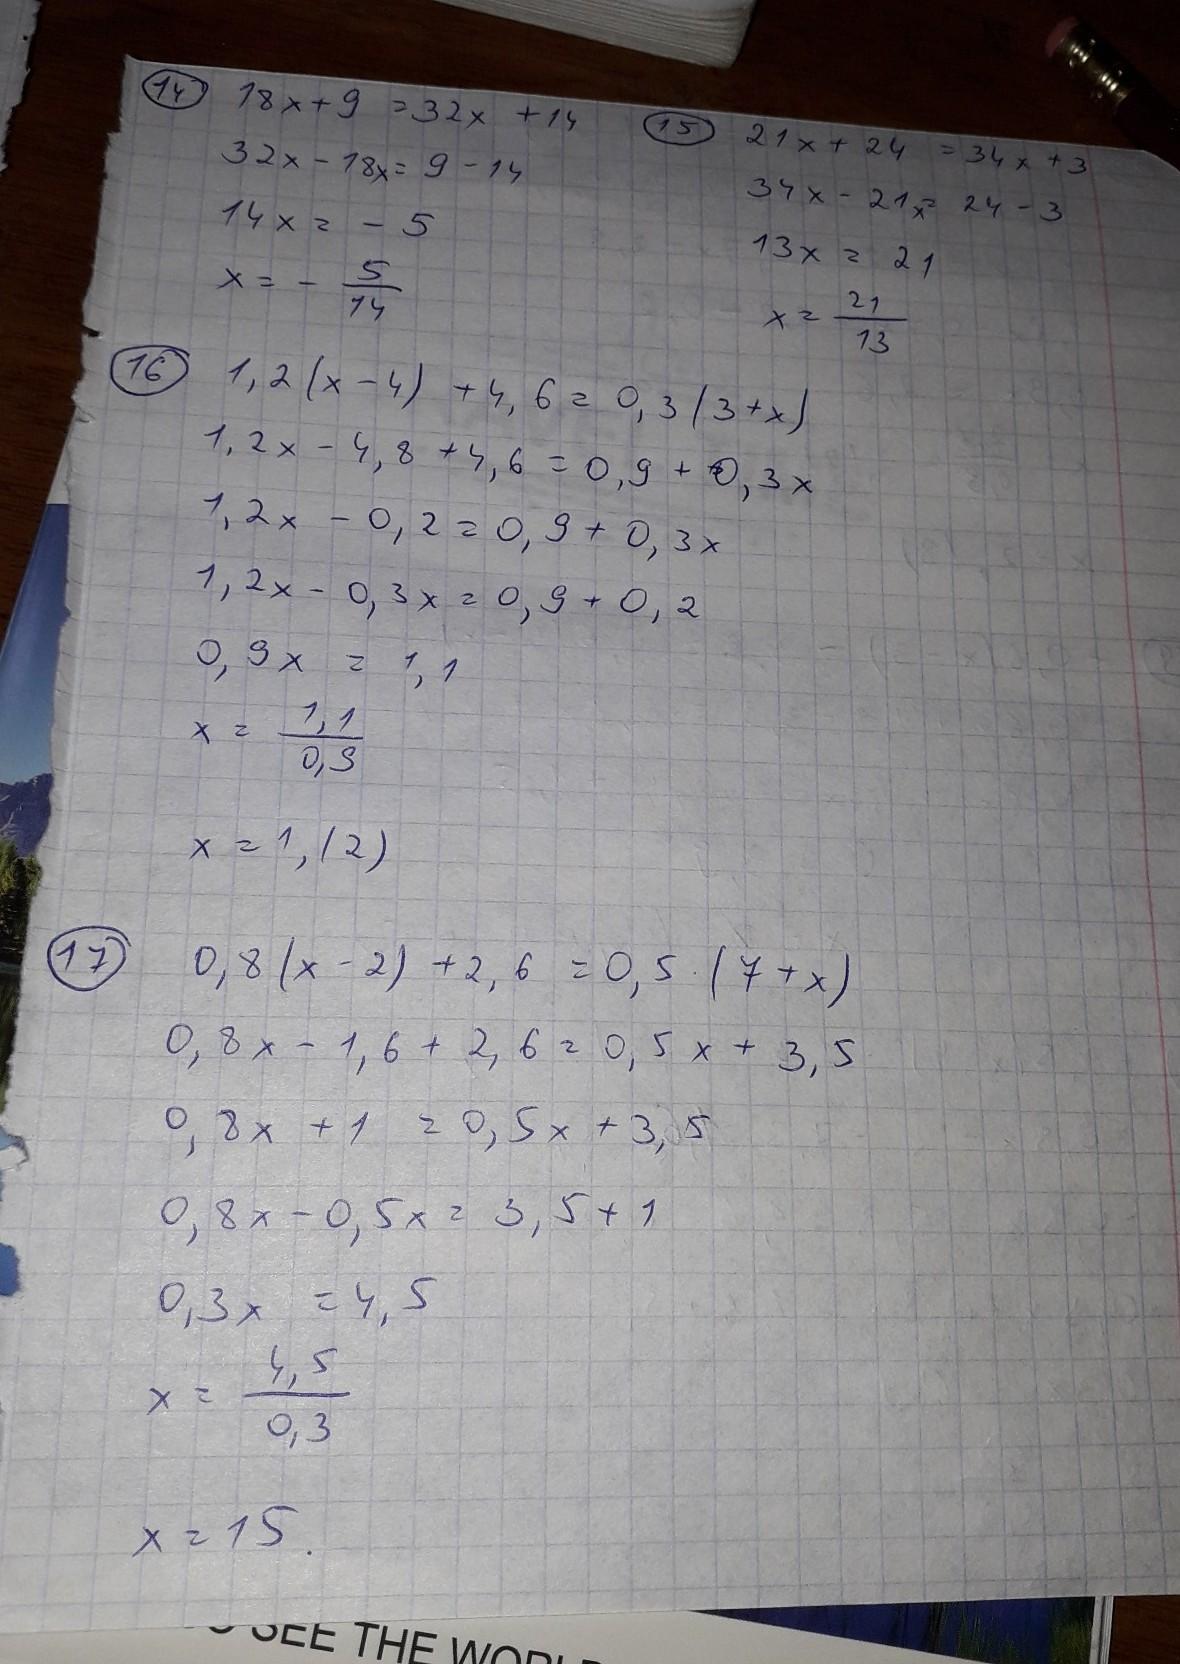 14 18x+9 =32x +14
32x-18x= 9-14
14x= -5
x= - 5/14
15 21x+24 =34x+3
34x-21x= 24-3
13x = 21
x= 21/13
16 1,2(x-4) +4,6=0,3(3+x)
1,2x-4,8+4,6=0,9+0,3x
1,2x-0,2=0,9+0,3x
1,2x-0,3x=0,9+0,2
0,9x = 1,1
x= 1,1/0,9
x=1,(2)
17 0,8(x-2)+2,6 =0,5·(7+x)
0,8x-1,6+2,6=0,5x+3,5
0,8x+1 =0,5x+3,5
0,8x-0,5x=3,5+1
0,3x =4,5
x= 4,5/0,3
x=15.
SEE THE WORL